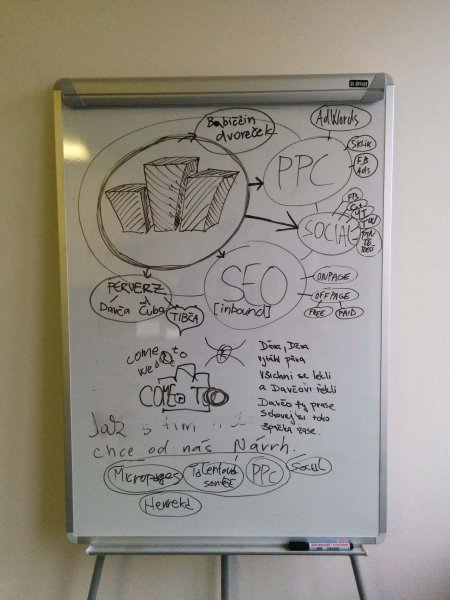 Babiččin
dvoreček
AdWords
PPC
SKlik
FB
Ads
FB
G+
YT
TW
PIN
TE
REST
SOCIAL
SEO
[inbound]
ONPAGE
OFFPAGE
FREE
PAID
PERVERZ
Davča Čuba
TIBČA
come to
web
COME TO
Dáva, Dáva
vylítlé páva
všichni se lekli
a Davčovi řekli
Davčo ty prase
schovej si toho
zase.
Jak s tím
chce od nás Návrh.
Micropages
Talentová
soutěž
PPC
Social